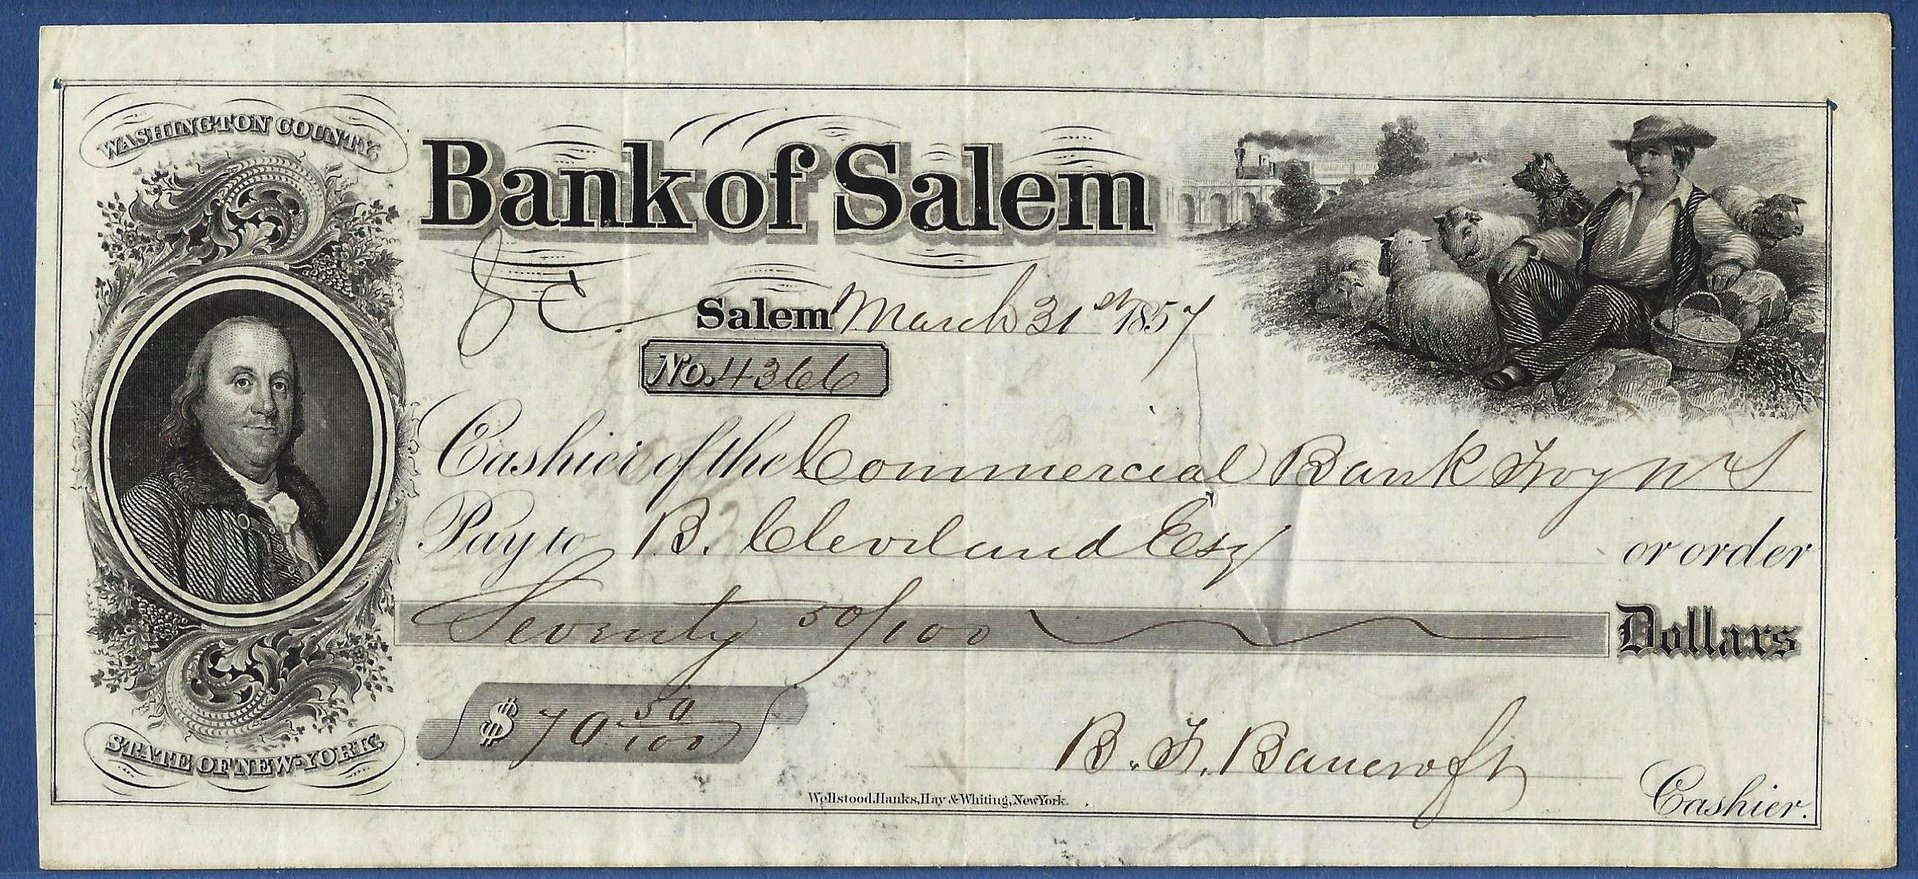 WASHINGTON COUNTY,
Bank of Salem
Salem March 31st 1857
No. 4366
Cashier of the Commercial Bank Troy NY
Pay to B. Cleveland Esq or order
Seventy 50/100 Dollars
$ 70 50/100
B. F. Bancroft
Cashier.
STATE OF NEW-YORK.
Wellstood, Hanks, Hay & Whiting, New York.